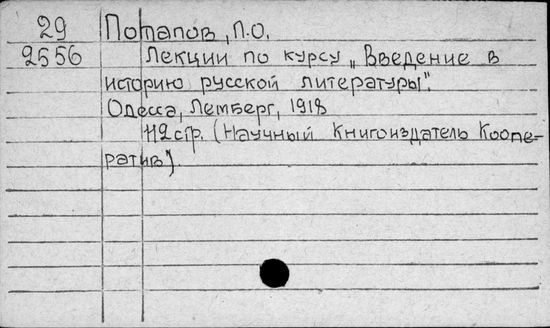 29 Потапов, П.О.
2556 Лекции по курсу „Введение в
историю русской литературы".
Одесса, Лемберг, 1918
112 стр. (Научный Книгоиздатель Коопе-
ратив)